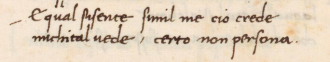 Equal susente simil me cio crede
michital uede, certo non persona.